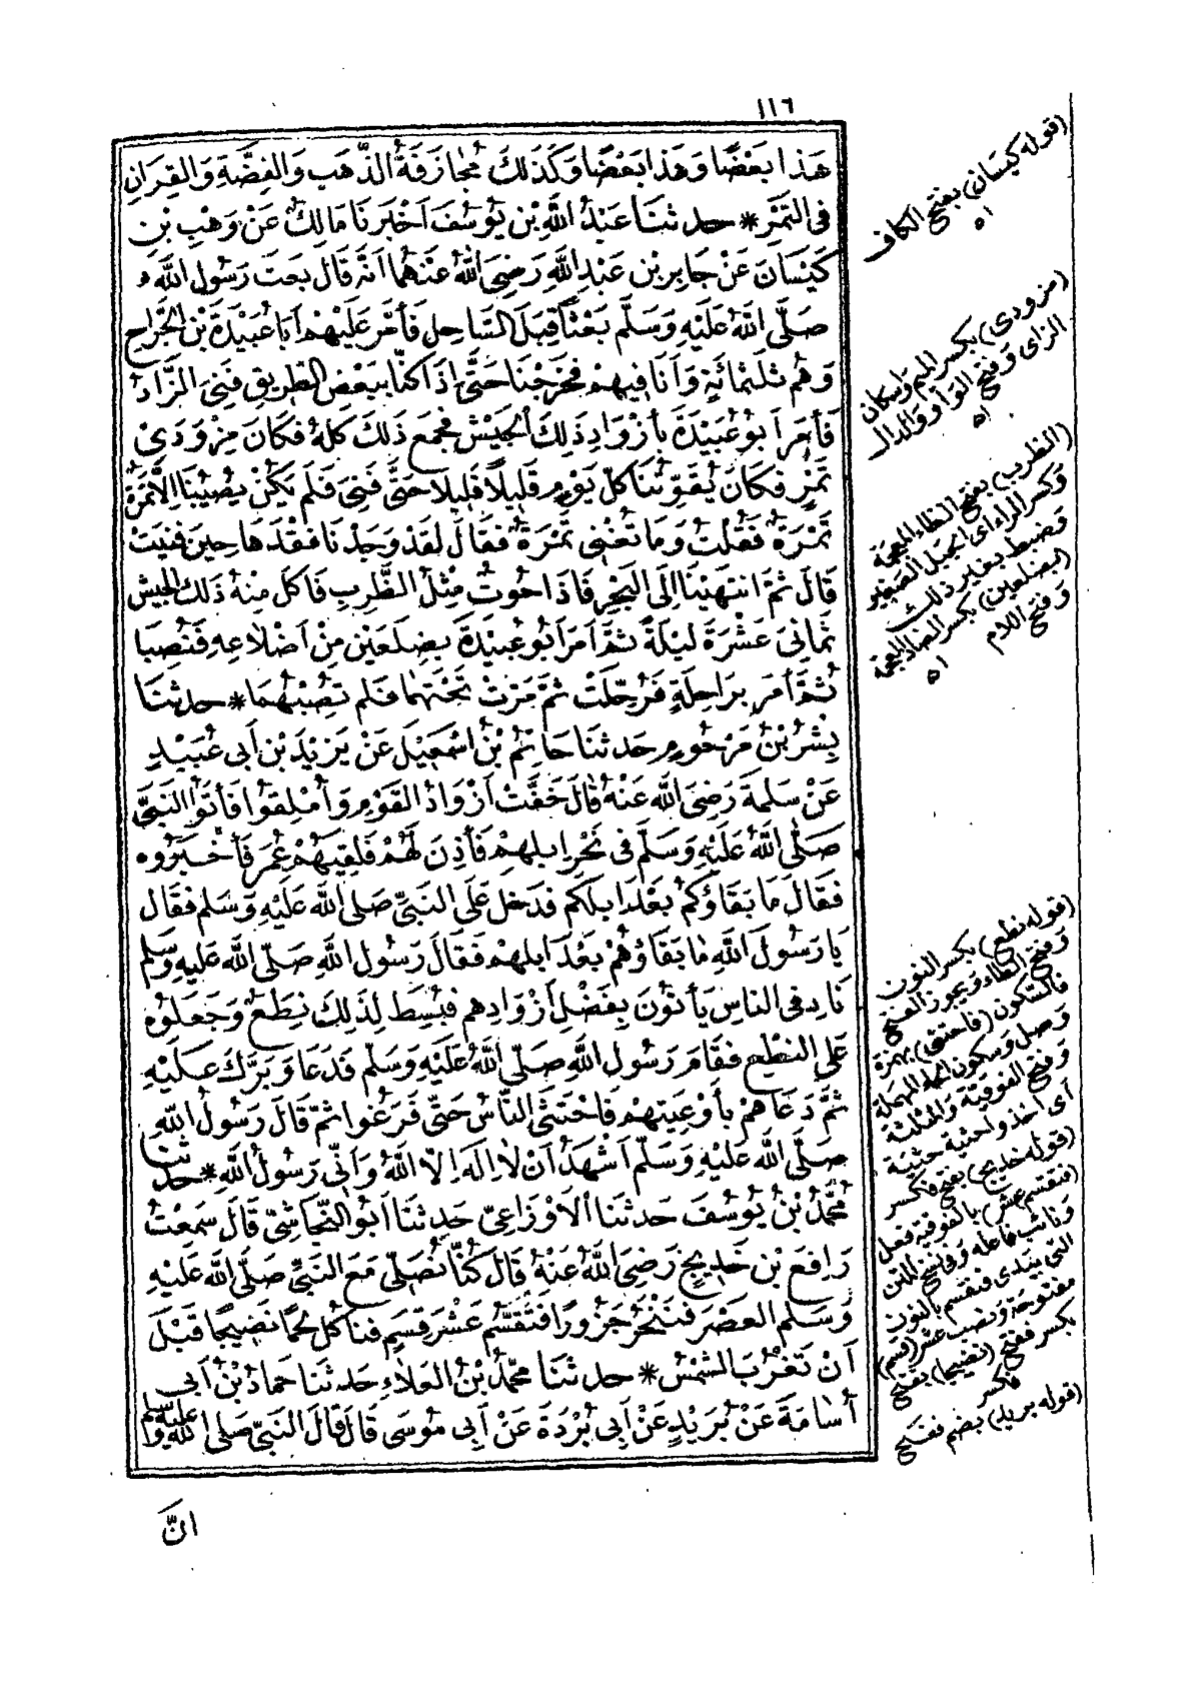 ١١٦
هَذَا بَعْضًا وَهَذَا بَعْضًا وَكَذَلِكَ مُجَازَفَةُ الذَّهَبِ وَالْفِضَّةِ وَالْقِرَانِ
فِى التَّمْرِ * حدثنا عَبْدُ اللَّهِ بْنِ يُوسُفَ أَخْبَرَنَا مَالِكٌ عَنْ وَهْبِ بْنِ
كَيْسَانَ عَنْ جَابِرِ بْنِ عَبْدِ اللَّهِ رَضِىَ اللَّهُ عَنْهُمَا أَنَّهُ قَالَ بَعَثَ رَسُولُ اللَّهِ
صَلَّى اللَّهُ عَلَيْهِ وَسَلَّم بَعْثًا قِبَلَ السَّاحِلِ فَأَمَّرَ عَلَيْهِمْ أَبَا عُبَيْدَةَ بْنَ الْجَرَّاحِ
وَهُم ثَلَثُمِائَةٍ وَأَنَا فِيهِمْ فَخَرَجْنَا حَتَّى إِذَا كُنَّا بِبَعْضِ الطَّرِيقِ فَنِىَ الزَّادُ
فَأَمَرَ أَبُو عُبَيْدَةَ بِأَزْوَادِ ذَلِكَ الْجَيْشِ فَجُمِعَ ذَلِكَ كُلُّهُ فَكَانَ مِزْوَدَىْ
تَمْرٍ فَكَانَ يُقَوِّتُنَا كُلَّ يَوْمٍ قَلِيلًا قَلِيلًا حَتَّى فَنِىَ فَلَمْ يَكُنْ يُصِيبُنَا إِلَّا تَمْرَةٌ
تَمْرَةٌ فَقُلْتُ وَمَا تُغْنِى تَمْرَةٌ فَقَالَ لَقَدْ وَجَدْنَا فَقْدَهَا حِينَ فَنِيَتْ
قَالَ ثُمَّ انْتَهَيْنَا إِلَى الْبَحْرِ فَإِذَا حُوتٌ مِثْلُ الظَّرِبِ فَأَكَلَ مِنْهُ ذَلِكَ الْجَيْشُ
ثَمَانِىَ عَشْرَةَ لَيْلَةً ثُمَّ أَمَرَ أَبُو عُبَيْدَةَ بِضِلَعَيْنِ مِنْ أَضْلَاعِهِ فَنُصِبَا
ثُمَّ أَمَرَ بِرَاحِلَةٍ فَرُحِّلَتْ ثُمَّ مَرَّتْ تَحْتَهُمَا فَلَم تُصِبْهُمَا * حدثنا
بِشْرُ بْنُ مَرْحُومٍ حدثنا حَاتِمُ بْنُ اسْمَعِيلَ عَنْ يَزِيْدَ بْنِ أَبِى عُبَيْدٍ
عَنْ سَلَمَةَ رَضِىَ اللَّه عَنْهُ قَالَ خَفَّتْ أَزْوَادُ الْقَوْمِ وَأَمْلَقُوا فَأَتَوُا النَّبِىَّ
صَلَّى اللَّهُ عَلَيْهِ وَسَلَّم فِى نَحْرِ إِبِلِهِمْ فَأَذِنَ لَهُمْ فَلَقِيَهُمْ عُمَرُ فَأَخْبَرُوه
فَقَالَ مَا بَقَاؤُكُمْ بَعْدَ ابِلِكُمْ فَدَخَلَ عَلَى النَّبِىِّ صَلَّى اللَّه عَلَيْهِ وَسَلم فقَال
يَا رَسُولَ اللَّهِ مَا بَقَاؤُهُمْ بَعْدَ ابِلِهِمْ فَقَالَ رَسُولُ اللَّهِ صَلَّى اللَّه عَلَيْهِ وَسَلَّم
نَادِ فِى النَّاسِ يَأْتُونَ بِفَضْلِ أَزْوَادِهِم فَبُسِطَ لِذَلِكَ نِطَعٌ وَجَعَلُوه
عَلَى النِّطَعِ فَقَامَ رَسُولُ اللَّهِ صَلَّى اللَّهُ عَلَيْهِ وَسَلَّم فَدَعَا وَبَرَّكَ عَلَيْهِ
ثُمَّ دَعَاهُمْ بِأَوْعِيَتِهِمْ فَاحْتَثَى النَّاسُ حَتَّى فَرَغُوا ثُمَّ قَالَ رَسُولُ اللَّهِ
صَلَّى اللَّه عَلَيْهِ وَسَلَّم أَشْهَدُ أَنْ لَا إِلَهَ إِلَّا اللَّهُ وَأَنِّى رَسُولُ اللَّهِ * حدثنا
مُحَمَّدُ بْنُ يُوسُفَ حَدثنا الأَوْزَاعِىُّ حَدثنَا أَبُو النَّجَاشِىِّ قَالَ سَمِعْتُ
رَافِعَ بْنَ خَدِيجٍ رَضِىَ اللَّهُ عَنْهُ قَالَ كُنَّا نُصَلِّى مَعَ النَّبِىِّ صَلَّى اللَّه عَلَيْهِ
وَسَلَّم الْعَصْرَ فَنَنْحَرُ جَزُورًا فَتُقْسَّمُ عَشْرَ قِسَمٍ فَنَأْكُلُ لَحْمًا نَضِيجًا قَبْلَ
أَنْ تَغْرُبَ الشَّمْسُ * حدثنا مُحَمَّدُ بْنُ الْعَلَاءِ حَدثنا حَمَادُ بْنُ أَبِى
أُسَامَةَ عَنْ بُرَيْدٍ عَنْ أَبِى بُرْدَةَ عَنْ أَبِى مُوسَى قَالَ قَالَ النَّبِىُّ صَلَّى اللَّهُ عَلَيْهِ وَسلم
انَّ
(قوله كيسان) بفتح الكاف
اه
(مزودى) بكسر الميم واسكان
الزاى وفتح الواو والدال
اه
(الظرب) بفتح الظاء المعجمة
وكسر الراء اى الجبل الصغير
وضبط بغير ذلك
(بضلعين) بكسر الضاد المعجمة
وفتح اللام
اه
(قوله نطع) بكسر النون
وفتح الطاء ويجوز الفتح
فالسكون (فاحتثى) بهمزة
وصل وسكون الحاء المهملة
وفتح الفوقية والمثلثة
أى اخذوا حثية حثية
(قوله خديج) بفتح فكسر
(فتقسم عشر) بالفوقية فعل
ونائب فاعله وفى نسخ المتن
التى بيدى فنقسم بالنون
مفتوحة ونصب عشر (قسم)
بكسر ففتح (نضيجا) بفتح
فكسر
(قوله بريد) بضم ففتح